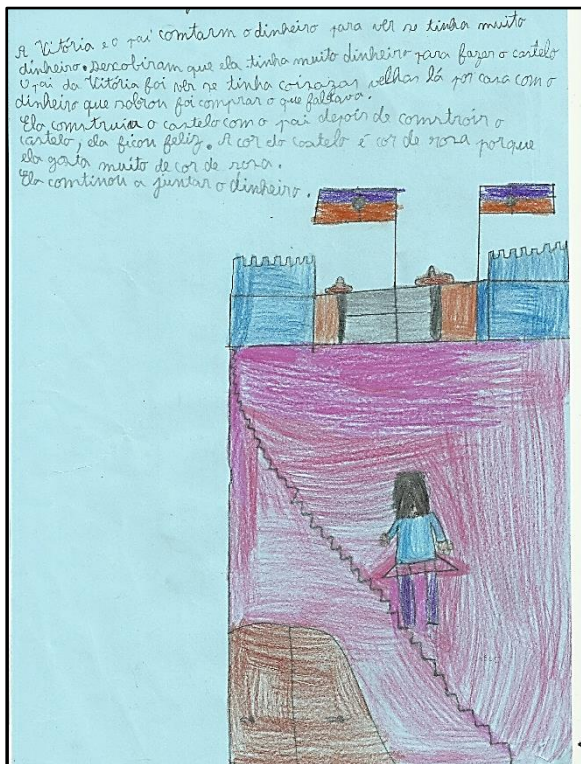 A Vitória e o pai comtarm o dinheiro para ver se tinha muito
dinheiro. Dercobiram que ela tinha muito dinheiro para fazer o castelo
O pai da Vitória foi ver se tinha coirazas velhas lá por casa com o
dinheiro que sobrou foi comprar o que faltava.
Ela comstruiu o castelo com o pai depois de comstroir o
castelo, ela ficou feliz. A cor do castelo é cor de rosa porque
ela gosta muito de cor de rosa.
Ela comtinou a juntar o dinheiro.